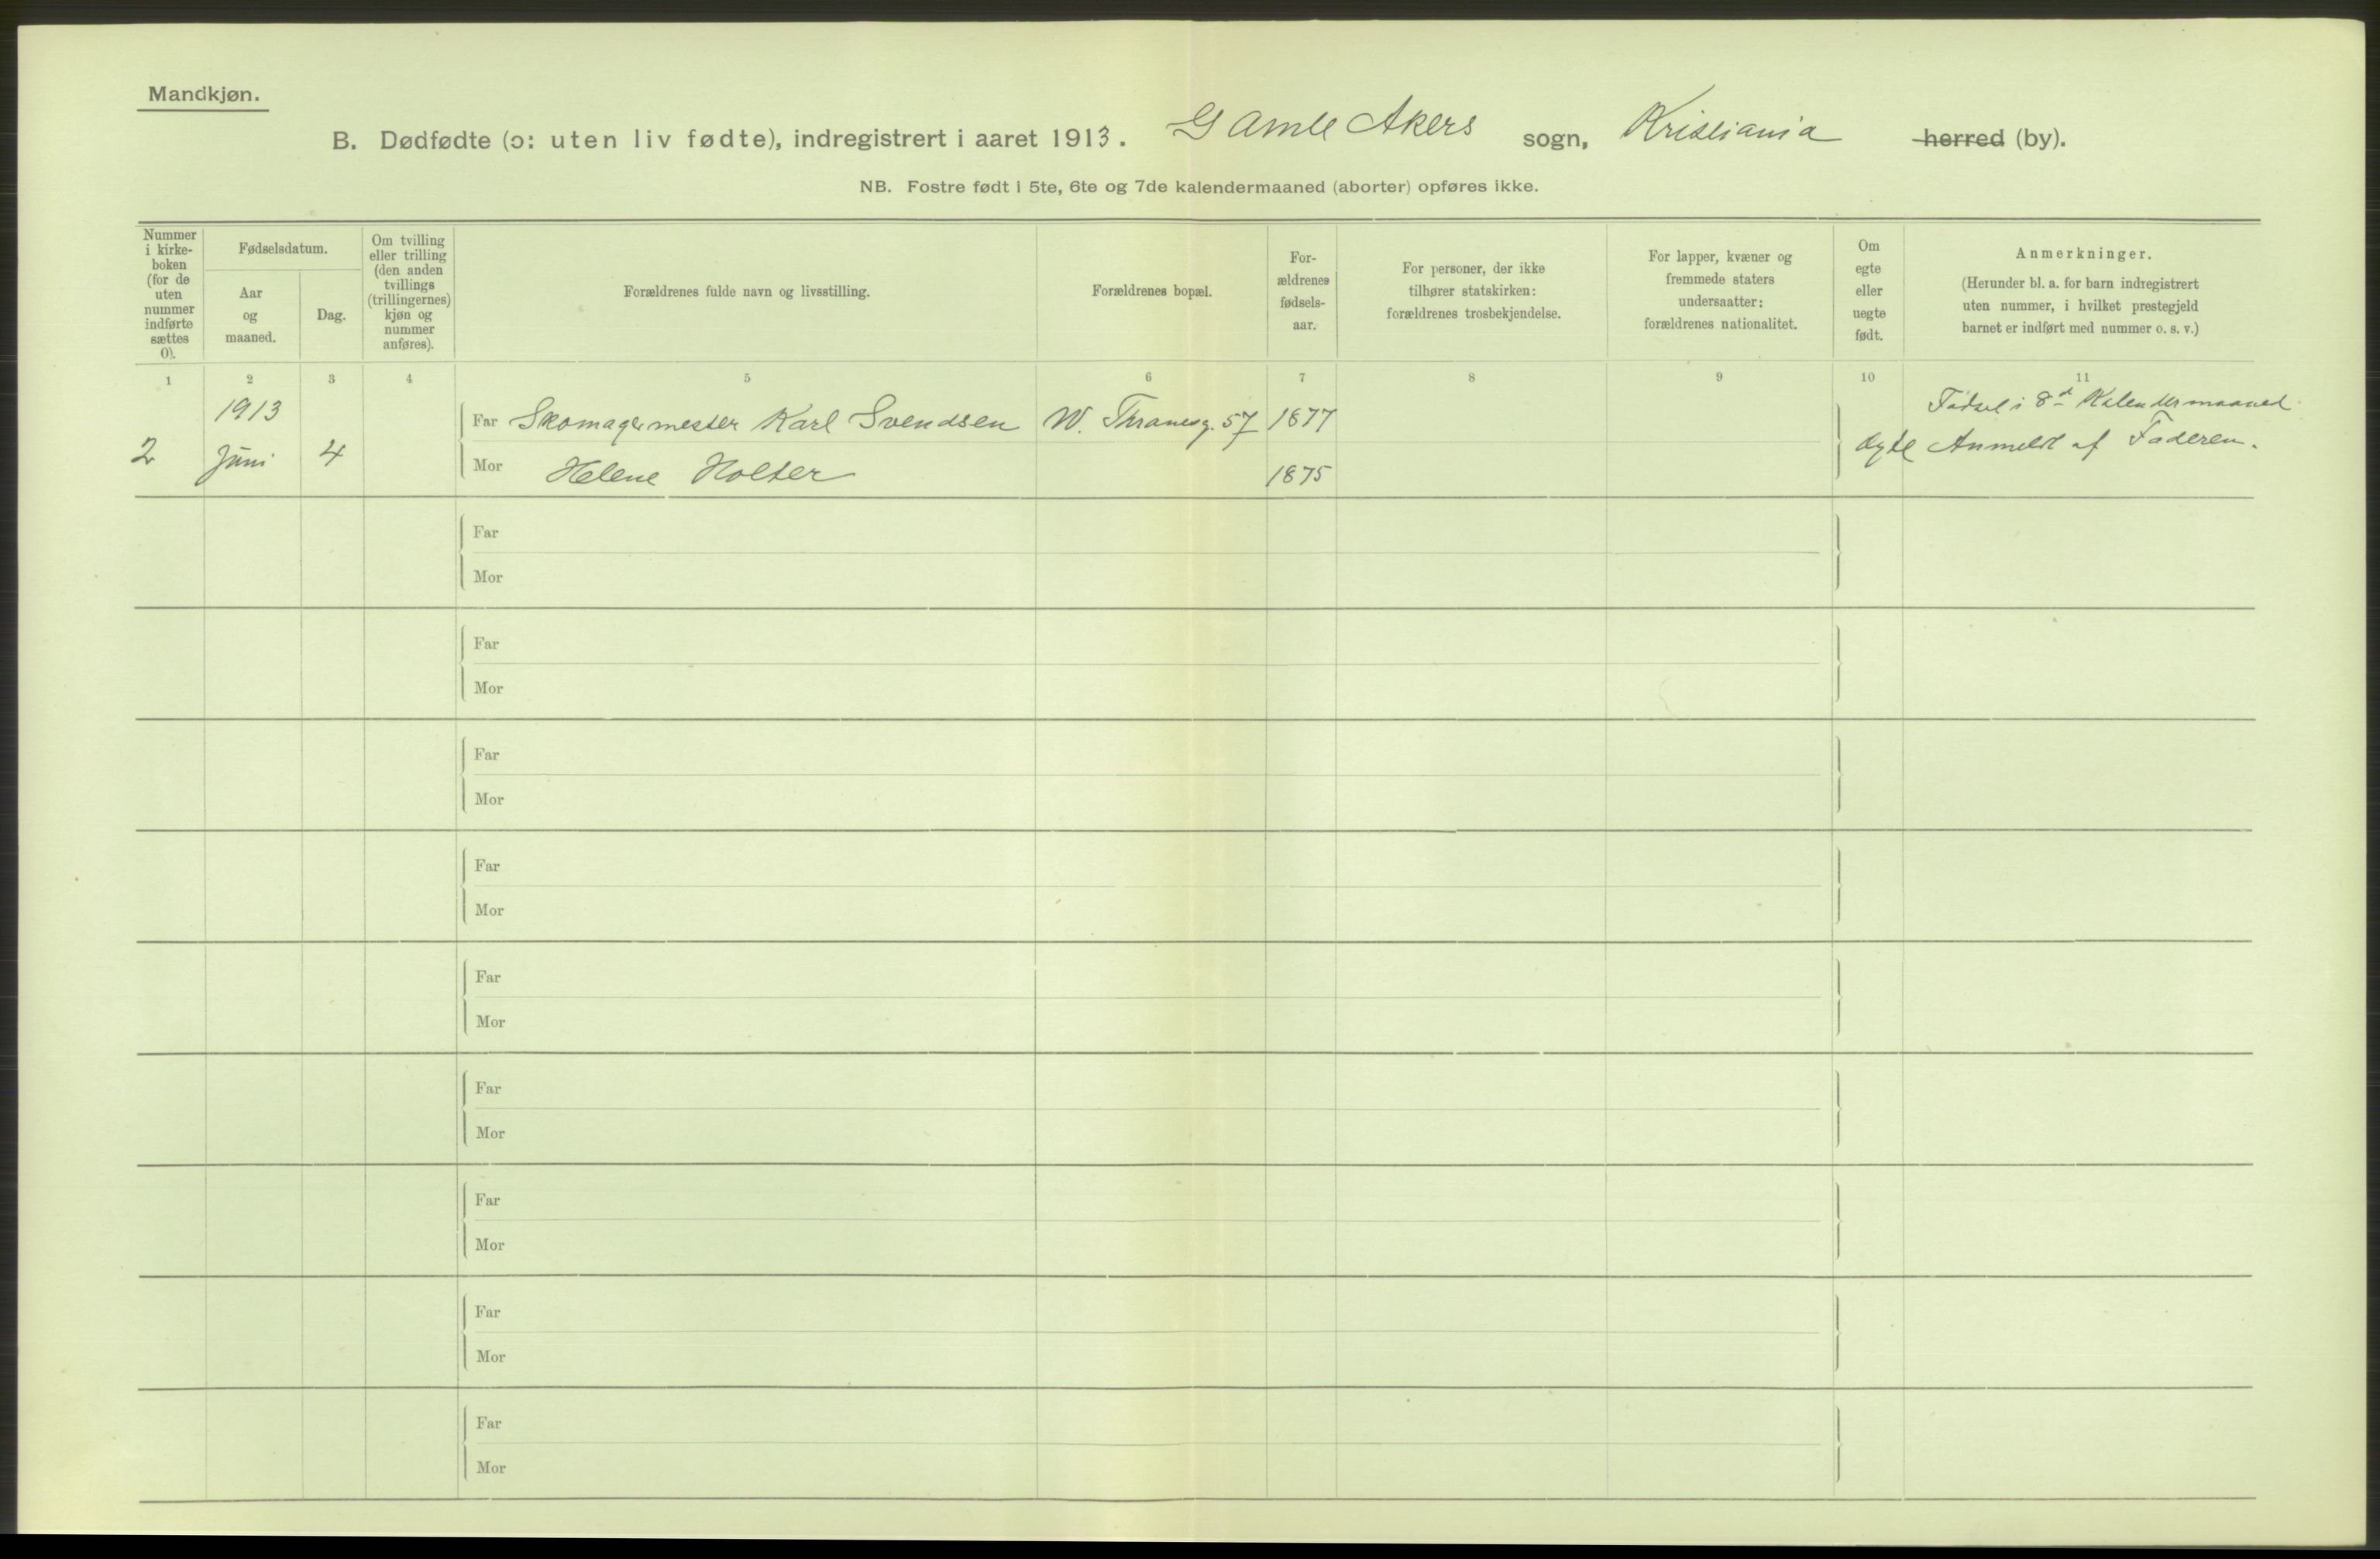 Mandkjøn.
B. Dødfødte (ɔ: uten liv fødte), indregistrert i aaret 1913. Gamle Akers sogn, Kristiania herred (by).
NB. Fostre født i 5te, 6te og 7de kalendermaaned (aborter) opføres ikke.
Nummer
i kirke-
boken
(for de
uten
nummer
indførte
sættes
0).
Fødselsdatum.
Aar
og
maaned.
Dag.
Om tvilling
eller trilling
(den anden
tvillings
(trillingernes)
kjøn og
nummer
anføres).
Forældrenes fulde navn og livsstilling.
Forældrenes bopæl.
For-
ældrenes
fødsels-
aar.
For personer, der ikke
tilhører statskirken:
forældrenes trosbekjendelse.
For lapper, kvæner og
fremmede staters
undersaatter:
forældrenes nationalitet.
Om
egte
eller
uegte
født.
Anmerkninger.
(Herunder bl. a. for barn indregistrert
uten nummer, i hvilket prestegjeld
barnet er indført med nummer o. s. v.)
1 2 3 4 5 6 7 8 9 10 11
1913 Far Skomagermester Karl Svendsen W. Thranesg. 57 1877 Fødsel i 8d Kalendermaaned.
2 Juni 4 Mor Helene Holter 1875 Ægte Anmeldt af Faderen.
Far
Mor
Far
Mor
Far
Mor
Far
Mor
Far
Mor
Far
Mor
Far
Mor
Far
Mor
Far
Mor